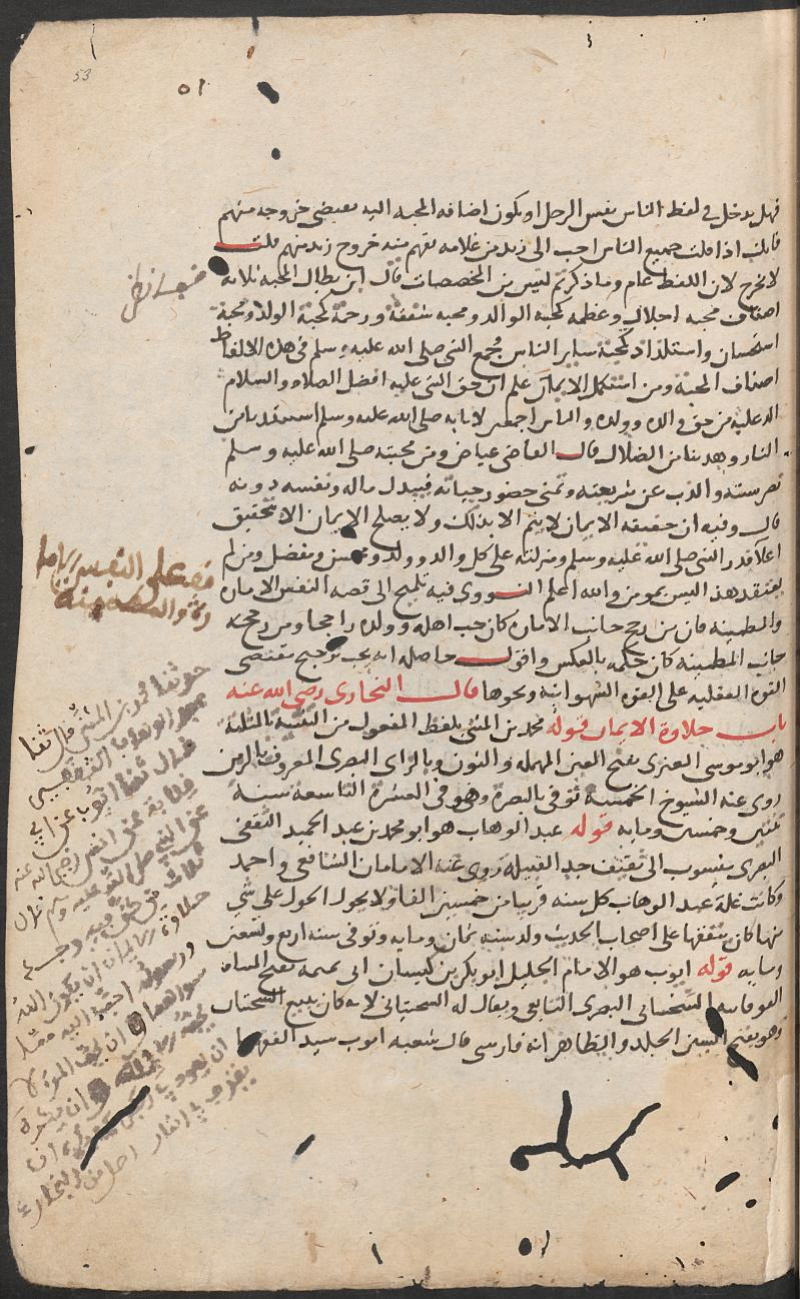 53
٥١
فهل يدخل في لفظ الناس نفس الرجل او يكون اضافه المحبه اليه مقتضى خروجه منهم
فانك اذا قلت جميع الناس احب الى زيد من غلامه يفهم منه خروج زيد منهم قلت
لا يخرج لان اللفظ عام وما ذكرتم ليس من المخصصات قال ابن بطال المحبه ثلاثه
اصناف محبه اجلال وعظمه كمحبه الوالد ومحبه شفقة ورحمة كمحبة الولد ومحبة
استحسان واستلذاذ كمحبة ساير الناس فجمع النبي صلى الله عليه وسلم في هذه الالفاظ
اصناف المحبة ومن استكمل الايمان علم ان حق النبي عليه افضل الصلاه والسلام
اكد عليه من حق والده وولده والناس اجمعين لان به صلى الله عليه وسلم استنقذنا من
النار وهدينا من الضلال قال القاضي عياض ومن محبته صلى الله عليه وسلم
نصر سنته والذب عن شريعته وتمنى حضور حياته فيبذل ماله ونفسه دونه
قال وفيه ان حقيقه الايمان لا يتم الا بذلك ولا يصلح الايمان الا بتحقيق
اعلا قدر النبي صلى الله عليه وسلم ومنزلته على كل والد وولد ومحسن ومفضل ومن لم
يعتقد هذا ليس بمومن والله اعلم النووي فيه تلميح الى قصه النفس الاماره
والمطمينه فان من رجح جانب الاماره كان حب اهله وولده راجحا ومن رجح
جانب المطمينه كان حكمه بالعكس واقول حاصله انه يجب ترجيح مقتضى
القوه العقليه على القوه الشهوانيه ونحوها قال البخاري رضي الله عنه
باب حلاوة الايمان قوله محمد بن المثنى بلفظ المفعول من التثنية بالمثلثة
هو ابو موسى العنزي بفتح العين المهمله والنون وبالزاي البصري المعروف بالزمن
روى عنه الشيوخ الخمسة توفي بالبصرة وهو في العشرة التاسعة سنة
ثنتين وخمسين ومايه قوله عبد الوهاب هو ابو محمد بن عبد الحميد الثقفي
البصري منسوب الى ثقيف جد القبيلة روى عنه الامامان الشافعي واحمد
وكانت غلة عبد الوهاب كل سنه قريبا من خمسين الفا ولا يحول الحول على شي
منها كان ينفقها على اصحاب الحديث ولد سنه ثمان ومايه وتوفي سنه اربع وتسعين
ومايه قوله ايوب هو الامام الجليل ابو بكر بن كيسان ابي تميمه بفتح المثناه
الفوقانيه السختياني البصري التابعي ويقال له السختياني لانه كان يبيع السختيان
وهو بفتح السين الجلد والظاهر انه فارسي قال شعبه ايوب سيد الفقها
قصة على النفس الاما
رة والمطمينة
حدثنا محمد بن المثنى قال ثنا
عبد الوهاب الثقفي
قال ثنا ايوب عن ابي
قلابة عن انس رضي الله عنه
عن النبي صلى الله عليه وسلم قال
ثلاث من كن فيه وجد
حلاوة الايمان ان يكون الله
ورسوله احب اليه مما
سواهما وان يحب المرء لا
يحبه الا لله وان يكره
ان يعود في الكفر كما يكره ان
يقذف في النار